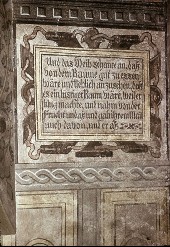 Und das Weib schauete an, daß
von dem Baume gut zu essen
wäre und lieblich anzusehen, daß
es ein lustiger Baum wäre, weil er
klug machte, und nahm von der
Frucht und aß und gab ihrem Mann
auch davon, und er aß